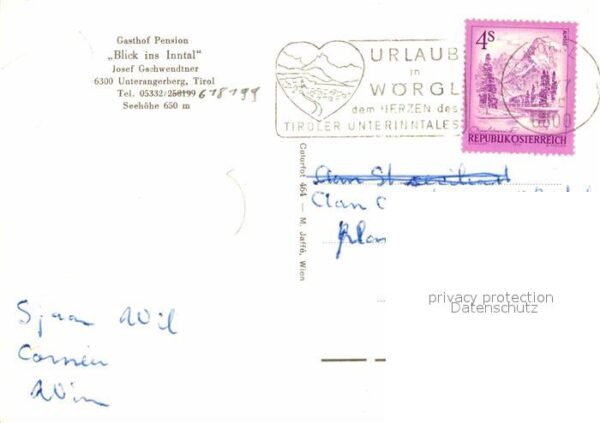 Gasthof Pension
„Blick ins Inntal"
Josef Gschwendtner
6300 Unterangerberg, Tirol
Tel. 05332/258199 618199
Seehöhe 650 m
URLAUB
in
WÖRGL
dem HERZEN des
TIROLER UNTERINNTALES
4S
REPUBLIK ÖSTERREICH
Colorfot 464 — M. Jaffé, Wien
privacy protection
Datenschutz
Sjaan Wil
Corrien
Wim